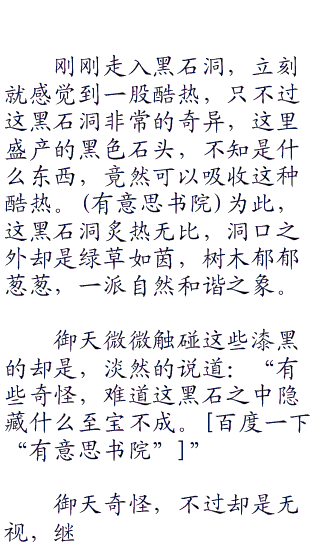 刚刚走入黑石洞，立刻
就感觉到一股酷热，只不过
这黑石洞非常的奇异，这里
盛产的黑色石头，不知是什
么东西，竟然可以吸收这种
酷热。(有意思书院)为此，
这黑石洞炙热无比，洞口之
外却是绿草如茵，树木郁郁
葱葱，一派自然和谐之象。
御天微微触碰这些漆黑
的却是，淡然的说道：“有
些奇怪，难道这黑石之中隐
藏什么至宝不成。[百度一下
“有意思书院”]”
御天奇怪，不过却是无
视，继